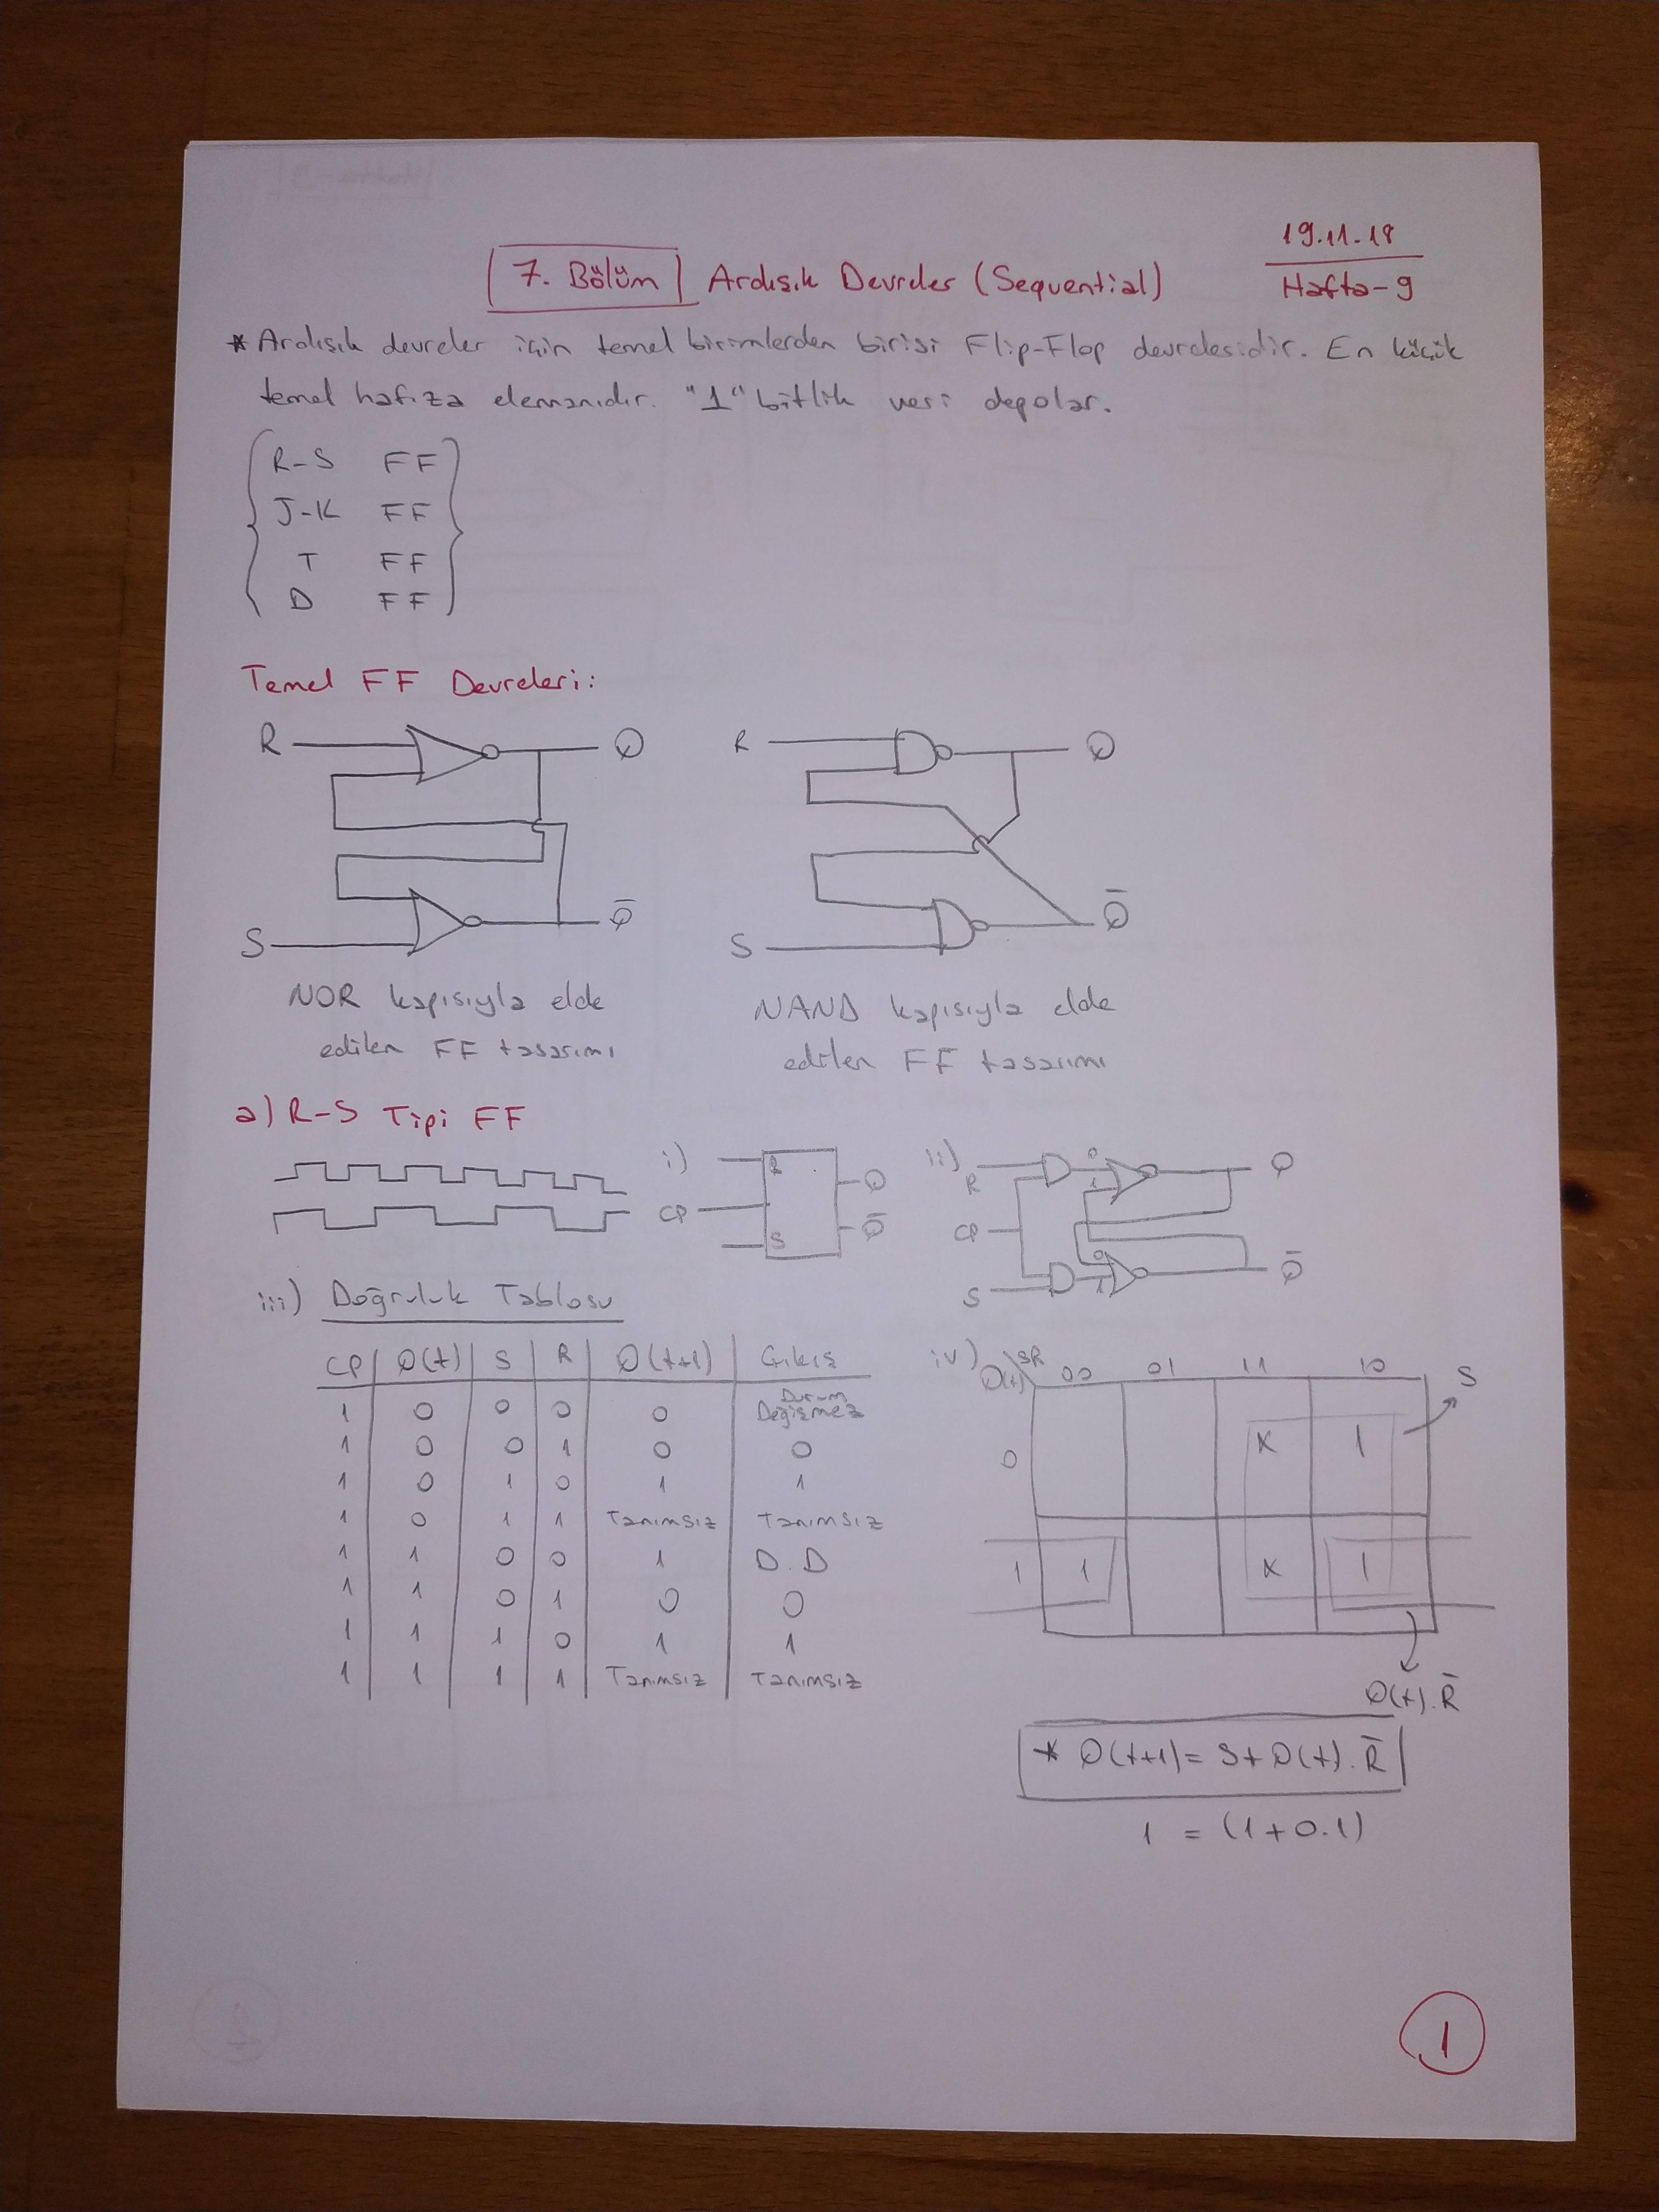 19.11.18
Hafta-9
7. Bölüm Ardışık Devreler (Sequential)
* Ardışık devreler için temel birimlerden birisi Flip-Flop devrelesidir. En küçük
temel hafıza elemanıdır. "1" bitlik veri depolar.
R-S FF
J-K FF
T FF
D FF
Temel FF Devreleri:
R Q
S Q̅
NOR kapısıyla elde
edilen FF tasarımı
R Q
S Q̅
NAND kapısıyla elde
edilen FF tasarımı
a) R-S Tipi FF
i)
CP
R Q
S Q̅
ii)
R Q
CP
S Q̅
iii) Doğruluk Tablosu
CP Q(t) S R Q(t+1) Çıkış
1 0 0 0 0 Durum Değişmez
1 0 0 1 0 0
1 0 1 0 1 1
1 0 1 1 Tanımsız Tanımsız
1 1 0 0 1 D.D
1 1 0 1 0 0
1 1 1 0 1 1
1 1 1 1 Tanımsız Tanımsız
iv)
Q(t) SR 00 01 11 10
0 K 1
1 1 K 1
S
Q(t).R̅
* Q(t+1) = S + Q(t).R̅
1 = (1+0.1)
1